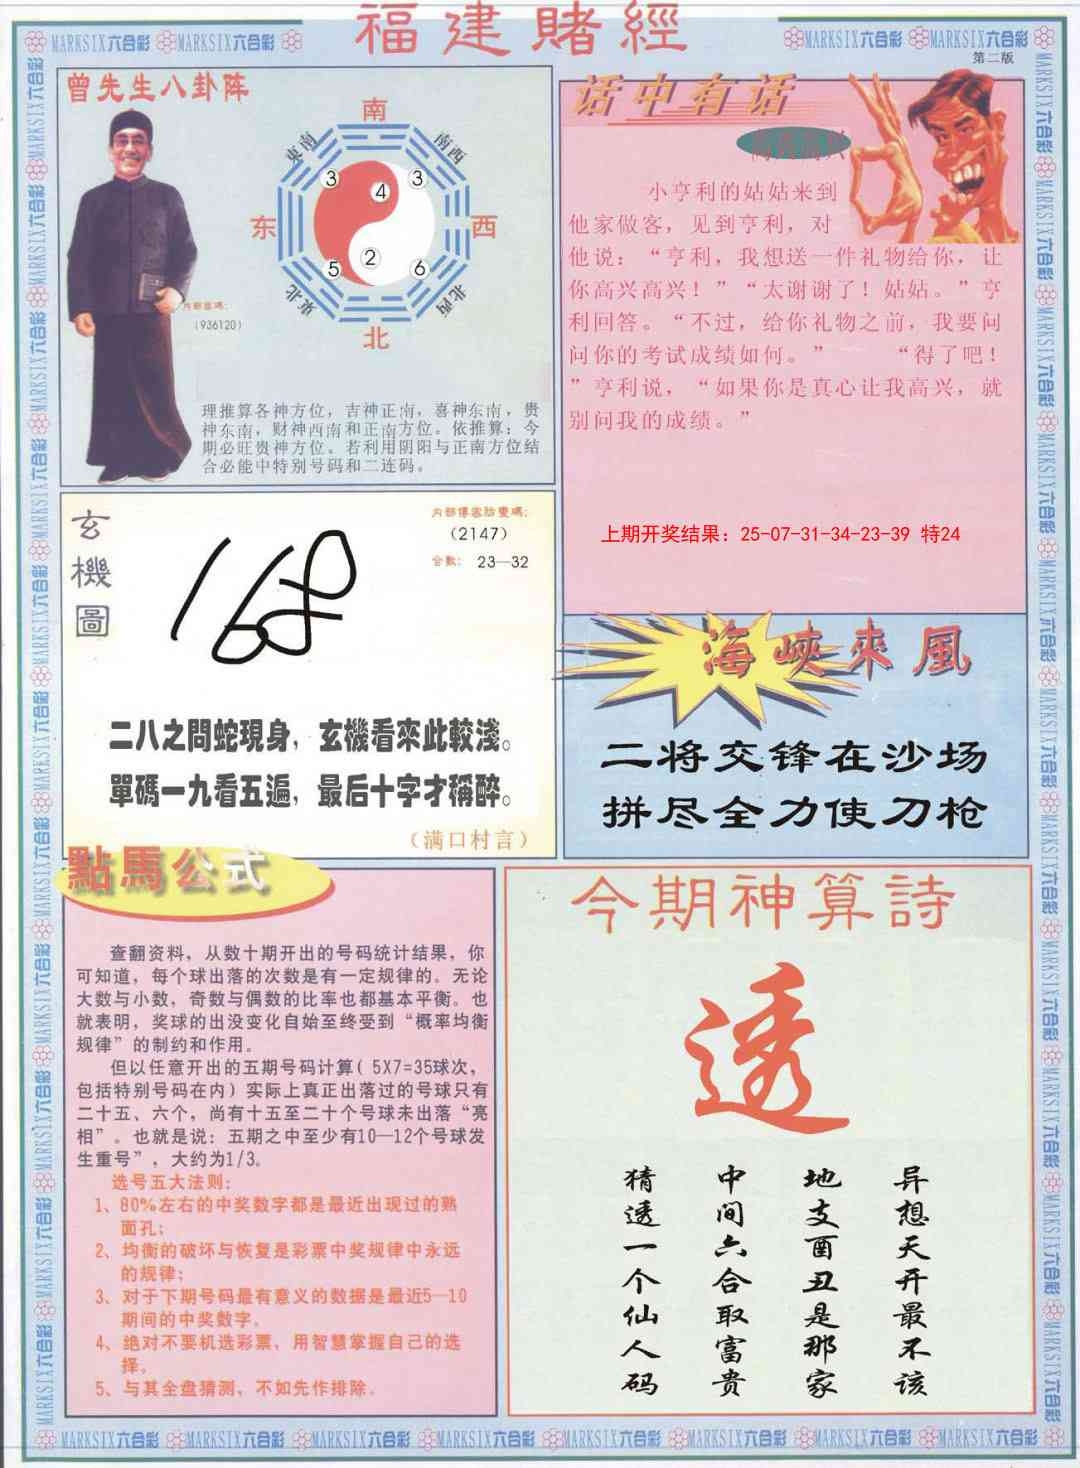 福建賭經
MARKSIX六合彩 MARKSIX六合彩 MARKSIX六合彩 MARKSIX六合彩
第二版
曾先生八卦阵
南
東南
南西
3
4
3
东
西
5
2
6
東北
北西
北
内部密碼:
(936120)
理推算各神方位，吉神正南，喜神东南，贵
神东南，财神西南和正南方位。依推算：今
期必旺贵神方位。若利用阴阳与正南方位结
合必能中特别号码和二连码。
话中有话
小亨利的姑姑来到
他家做客，见到亨利，对
他说：“亨利，我想送一件礼物给你，让
你高兴高兴！”“太谢谢了！姑姑。”亨
利回答。“不过，给你礼物之前，我要问
问你的考试成绩如何。” “得了吧！
”亨利说，“如果你是真心让我高兴，就
别问我的成绩。”
上期开奖结果：25-07-31-34-23-39 特24
玄機圖
168
(2147)
合数: 23—32
二八之問蛇現身，玄機看來此較淺。
單碼一九看五遍，最后十字才稱醉。
（满口村言）
海峽來風
二将交锋在沙场
拼尽全力使刀枪
點馬公式
查翻资料，从数十期开出的号码统计结果，你
可知道，每个球出落的次数是有一定规律的。无论
大数与小数，奇数与偶数的比率也都基本平衡。也
就表明，奖球的出没变化自始至终受到“概率均衡
规律”的制约和作用。
但以任意开出的五期号码计算( 5X7=35球次，
包括特别号码在内）实际上真正出落过的号球只有
二十五、六个，尚有十五至二十个号球未出落“亮
相”。也就是说：五期之中至少有10—12个号球发
生重号”，大约为1/3。
选号五大法则:
1、80%左右的中奖数字都是最近出现过的熟
面孔；
2、均衡的破坏与恢复是彩票中奖规律中永远
的规律；
3、对于下期号码最有意义的数据是最近5—10
期间的中奖数字。
4、绝对不要机选彩票，用智慧掌握自己的选
择。
5、与其全盘猜测，不如先作排除。
今期神算詩
透
异想天开最不该
地支酉丑是那家
中间六合取富贵
猜透一个仙人码
MARKSIX六合彩 MARKSIX六合彩 MARKSIX六合彩 MARKSIX六合彩 MARKSIX六合彩 MARKSIX六合彩 MARKSIX六合彩 MARKSIX六合彩